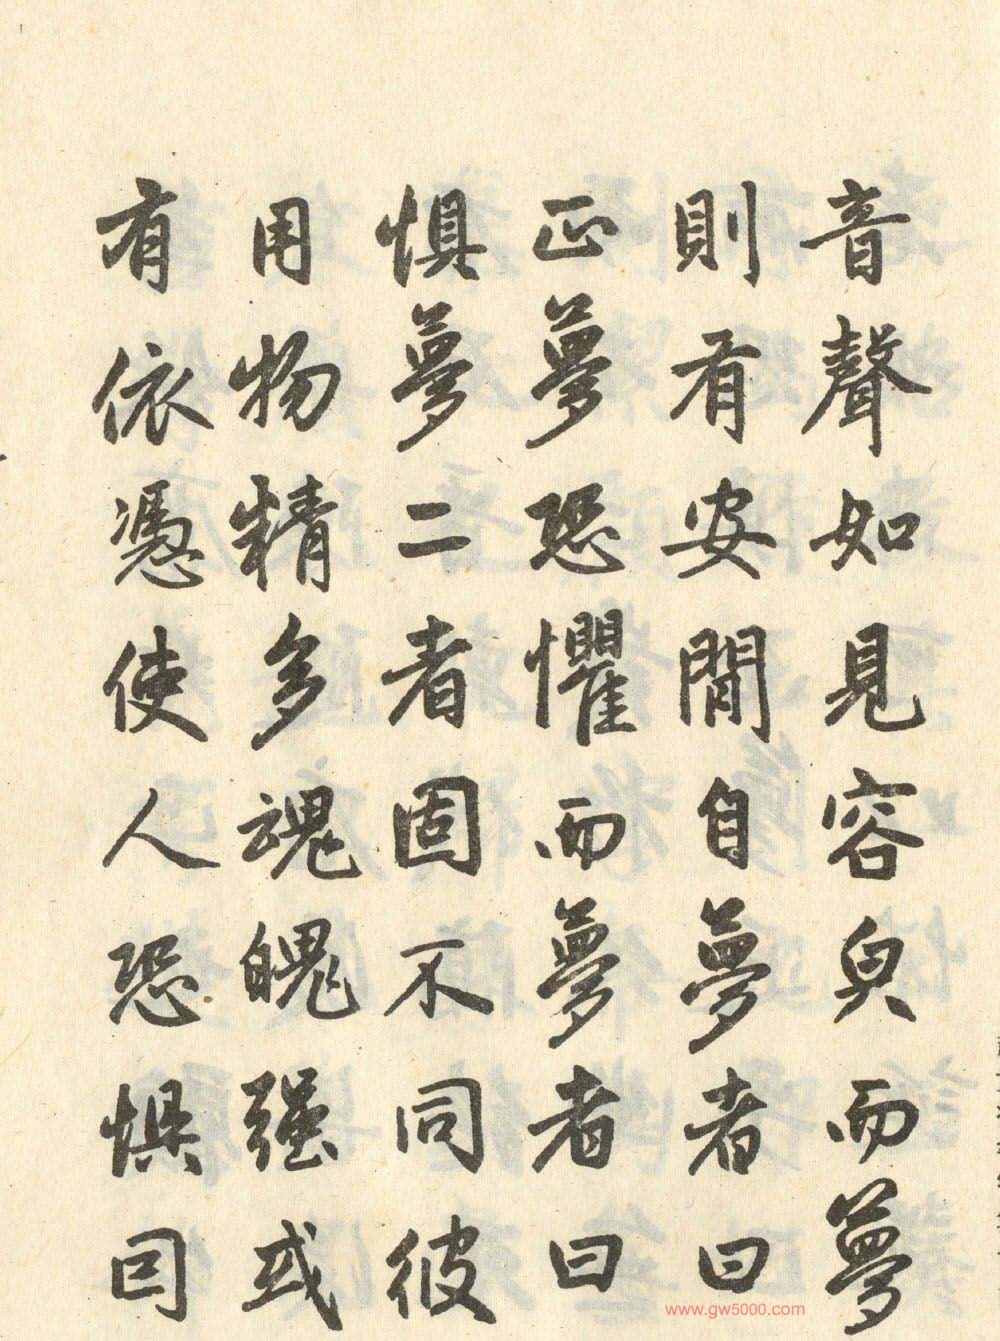 音聲如見容皃而夢
則有安閒自夢者曰
正夢恐懼而夢者曰
惧夢二者固不同彼
用物精多魂魄强或
有依憑使人恐惧曰
www.gw5000.com